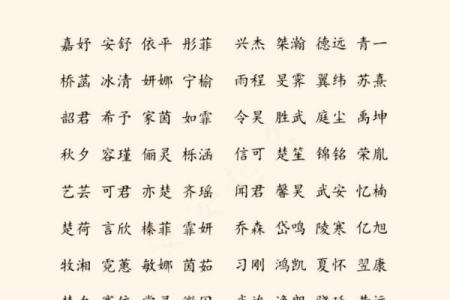 嘉妤 安舒 依平 彤菲 兴杰 桀瀚 德远 青一
桥菡 冰清 妍娜 宁榆 雨程 旻霁 翼纬 苏熹
韶君 希予 家茵 如霏 令昊 胜武 庭尘 禹坤
秋夕 容瑾 俪灵 栎涵 信可 楚笙 锦铭 荣胤
艺芸 可君 亦楚 齐瑶 闻君 馨昊 武安 忆楠
楚荷 言欣 榛菲 霏妍 乔森 岱鸣 陵寒 亿旭
牧湘 霓蕙 敏娜 茵茹 习刚 鸿凯 夏怀 翌康